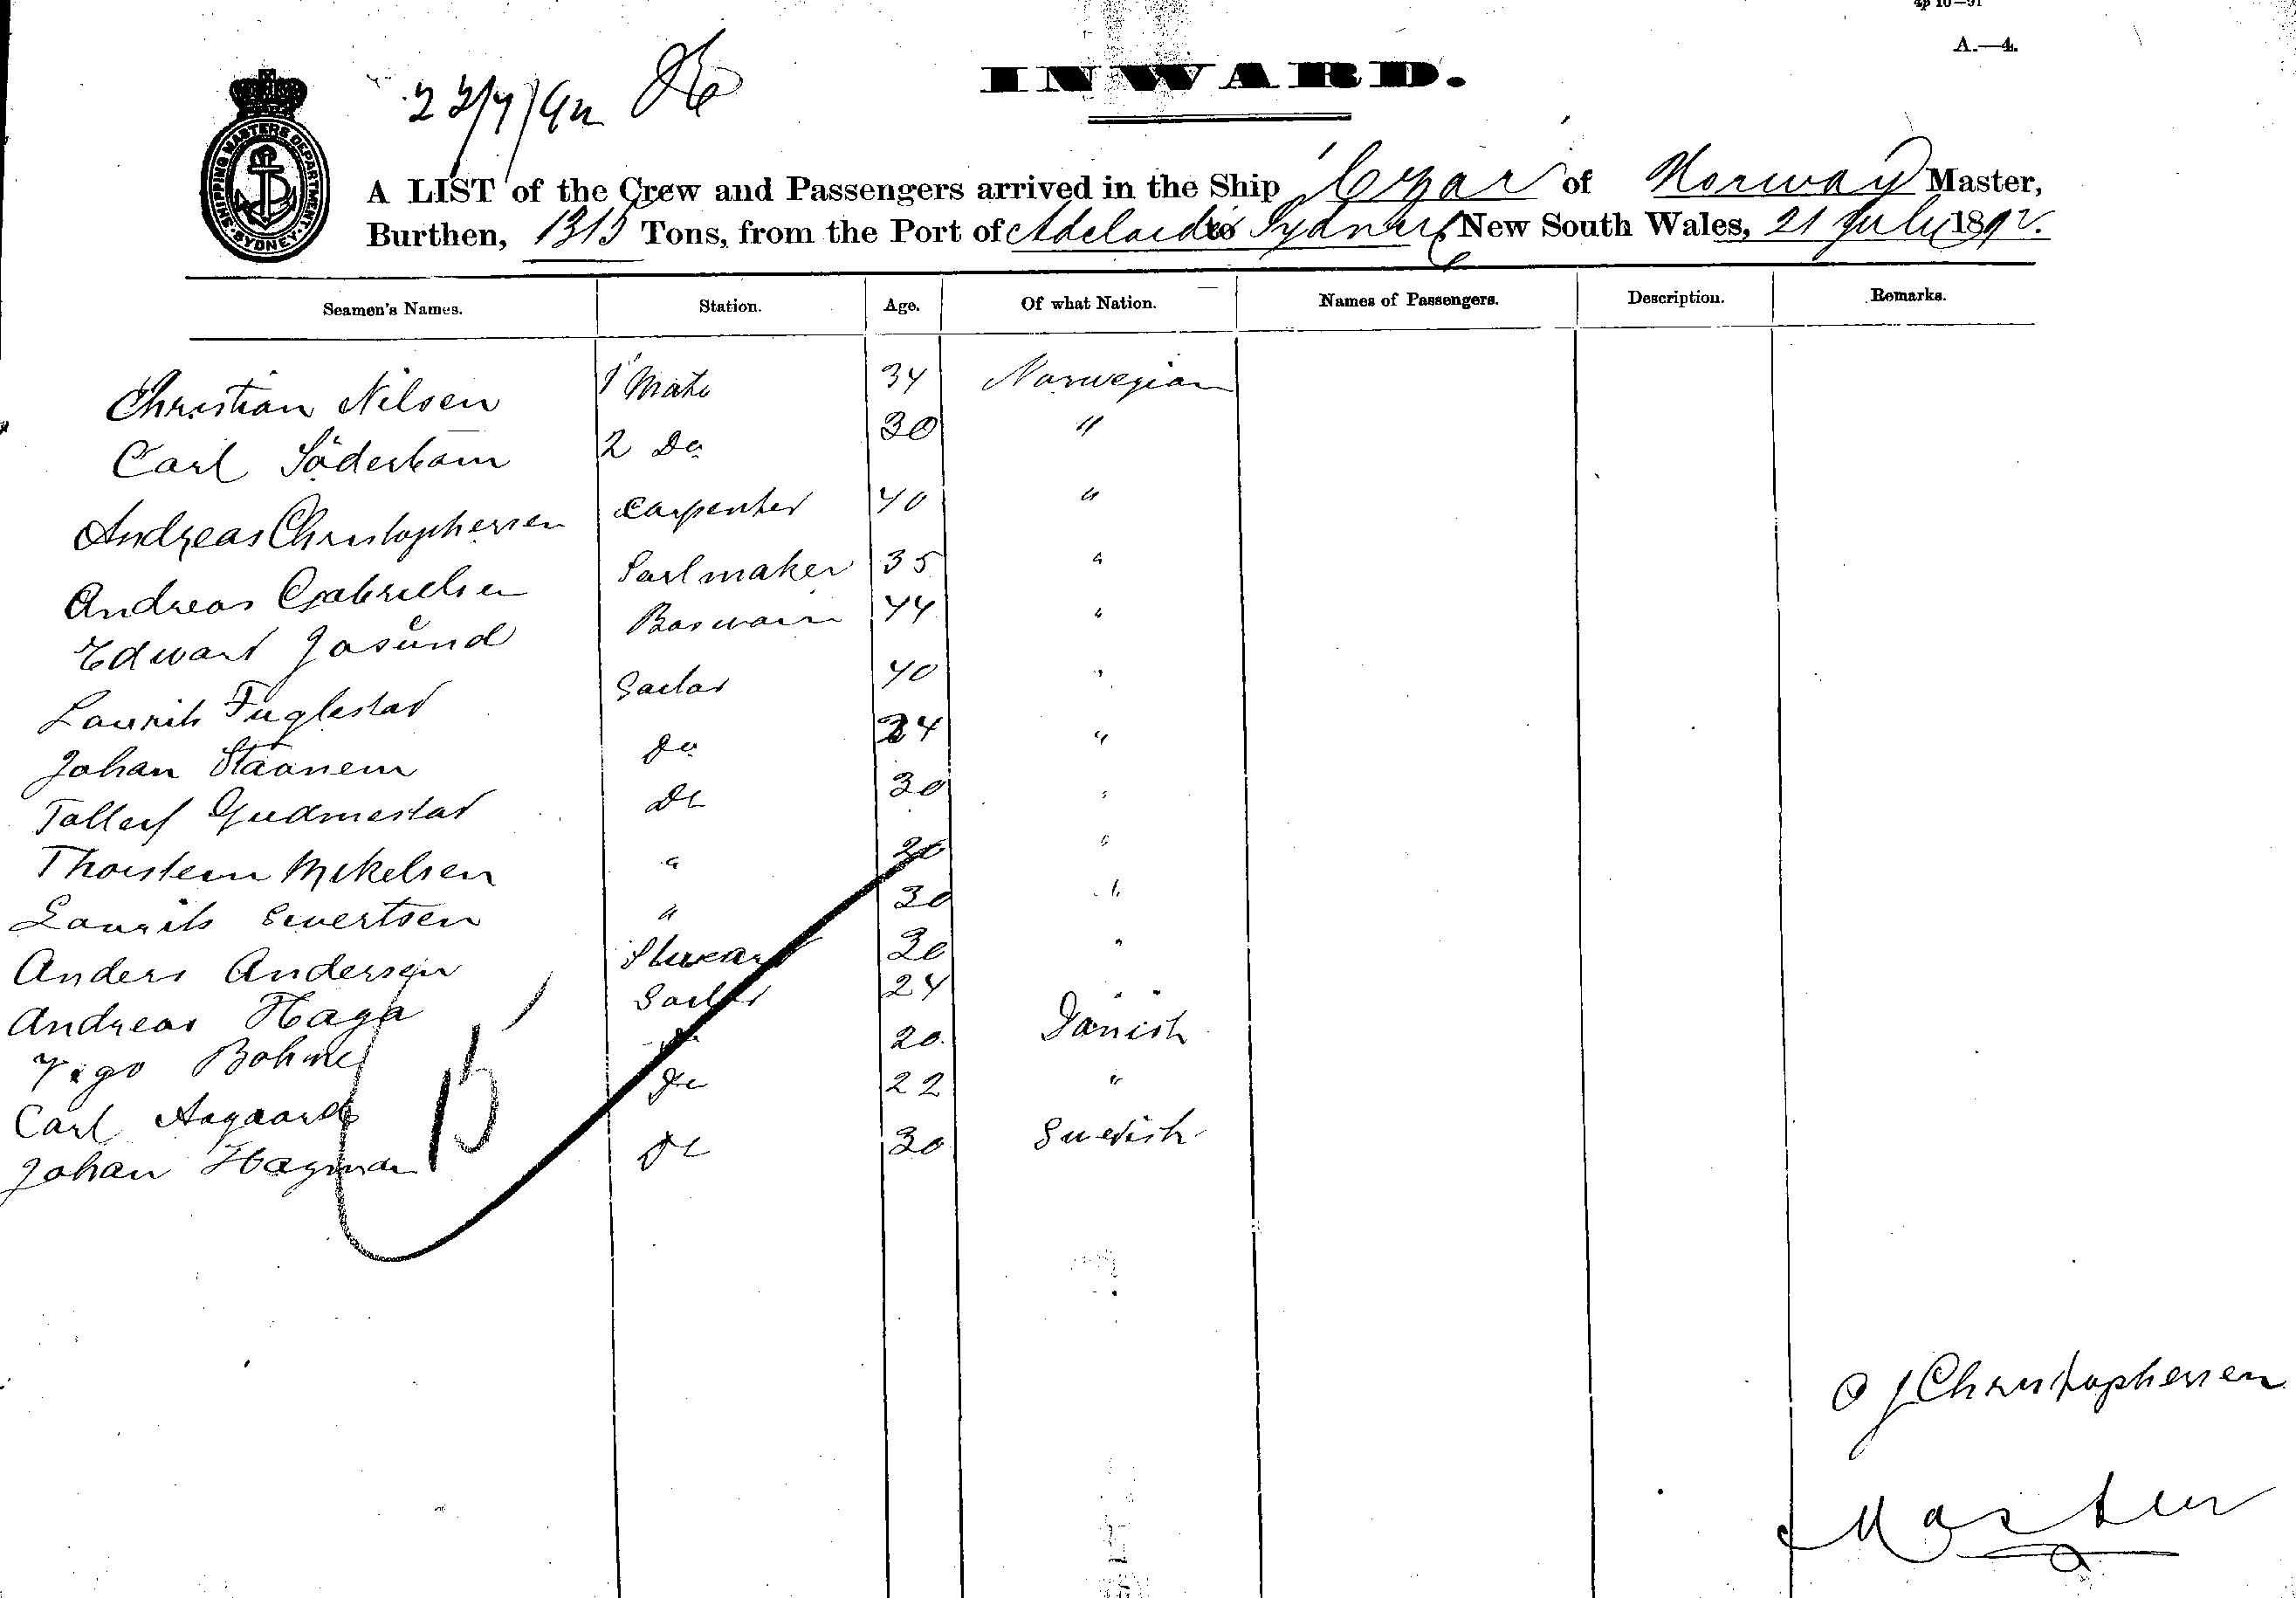 4p 10—91
A.—4.
22/7/92
INWARD.
SHIPPING MASTERS DEPARTMENT SYDNEY
A LIST of the Crew and Passengers arrived in the Ship Czar of Norway Master,
Burthen, 1315 Tons, from the Port of Adelaide to Sydney, New South Wales, 21 July 1892.
Seamen's Names. Station. Age. Of what Nation. Names of Passengers. Description. Remarks.
Christian Nilsen 1 Mate 34 Norwegian
Carl Söderham 2 Do 30 "
Andreas Christophersen Carpenter 40 "
Andreas Gabrielsen Sailmaker 35 "
Edward Josund Boswain 44 "
Laurits Fuglestad Sailor 40 "
Johan Staanem Do 24 "
Tollef Gudmestad Do 30 "
Thorstein Mikelsen " 20 "
Laurits Sivertsen " 30 "
Anders Andersen Steward 30 "
Andreas Haga Sailor 24 "
Vigo Bohme 20 Danish
Carl Aagaard Do 22 "
Johan Hagman Do 30 Swedish
15
O J Christophersen
Master